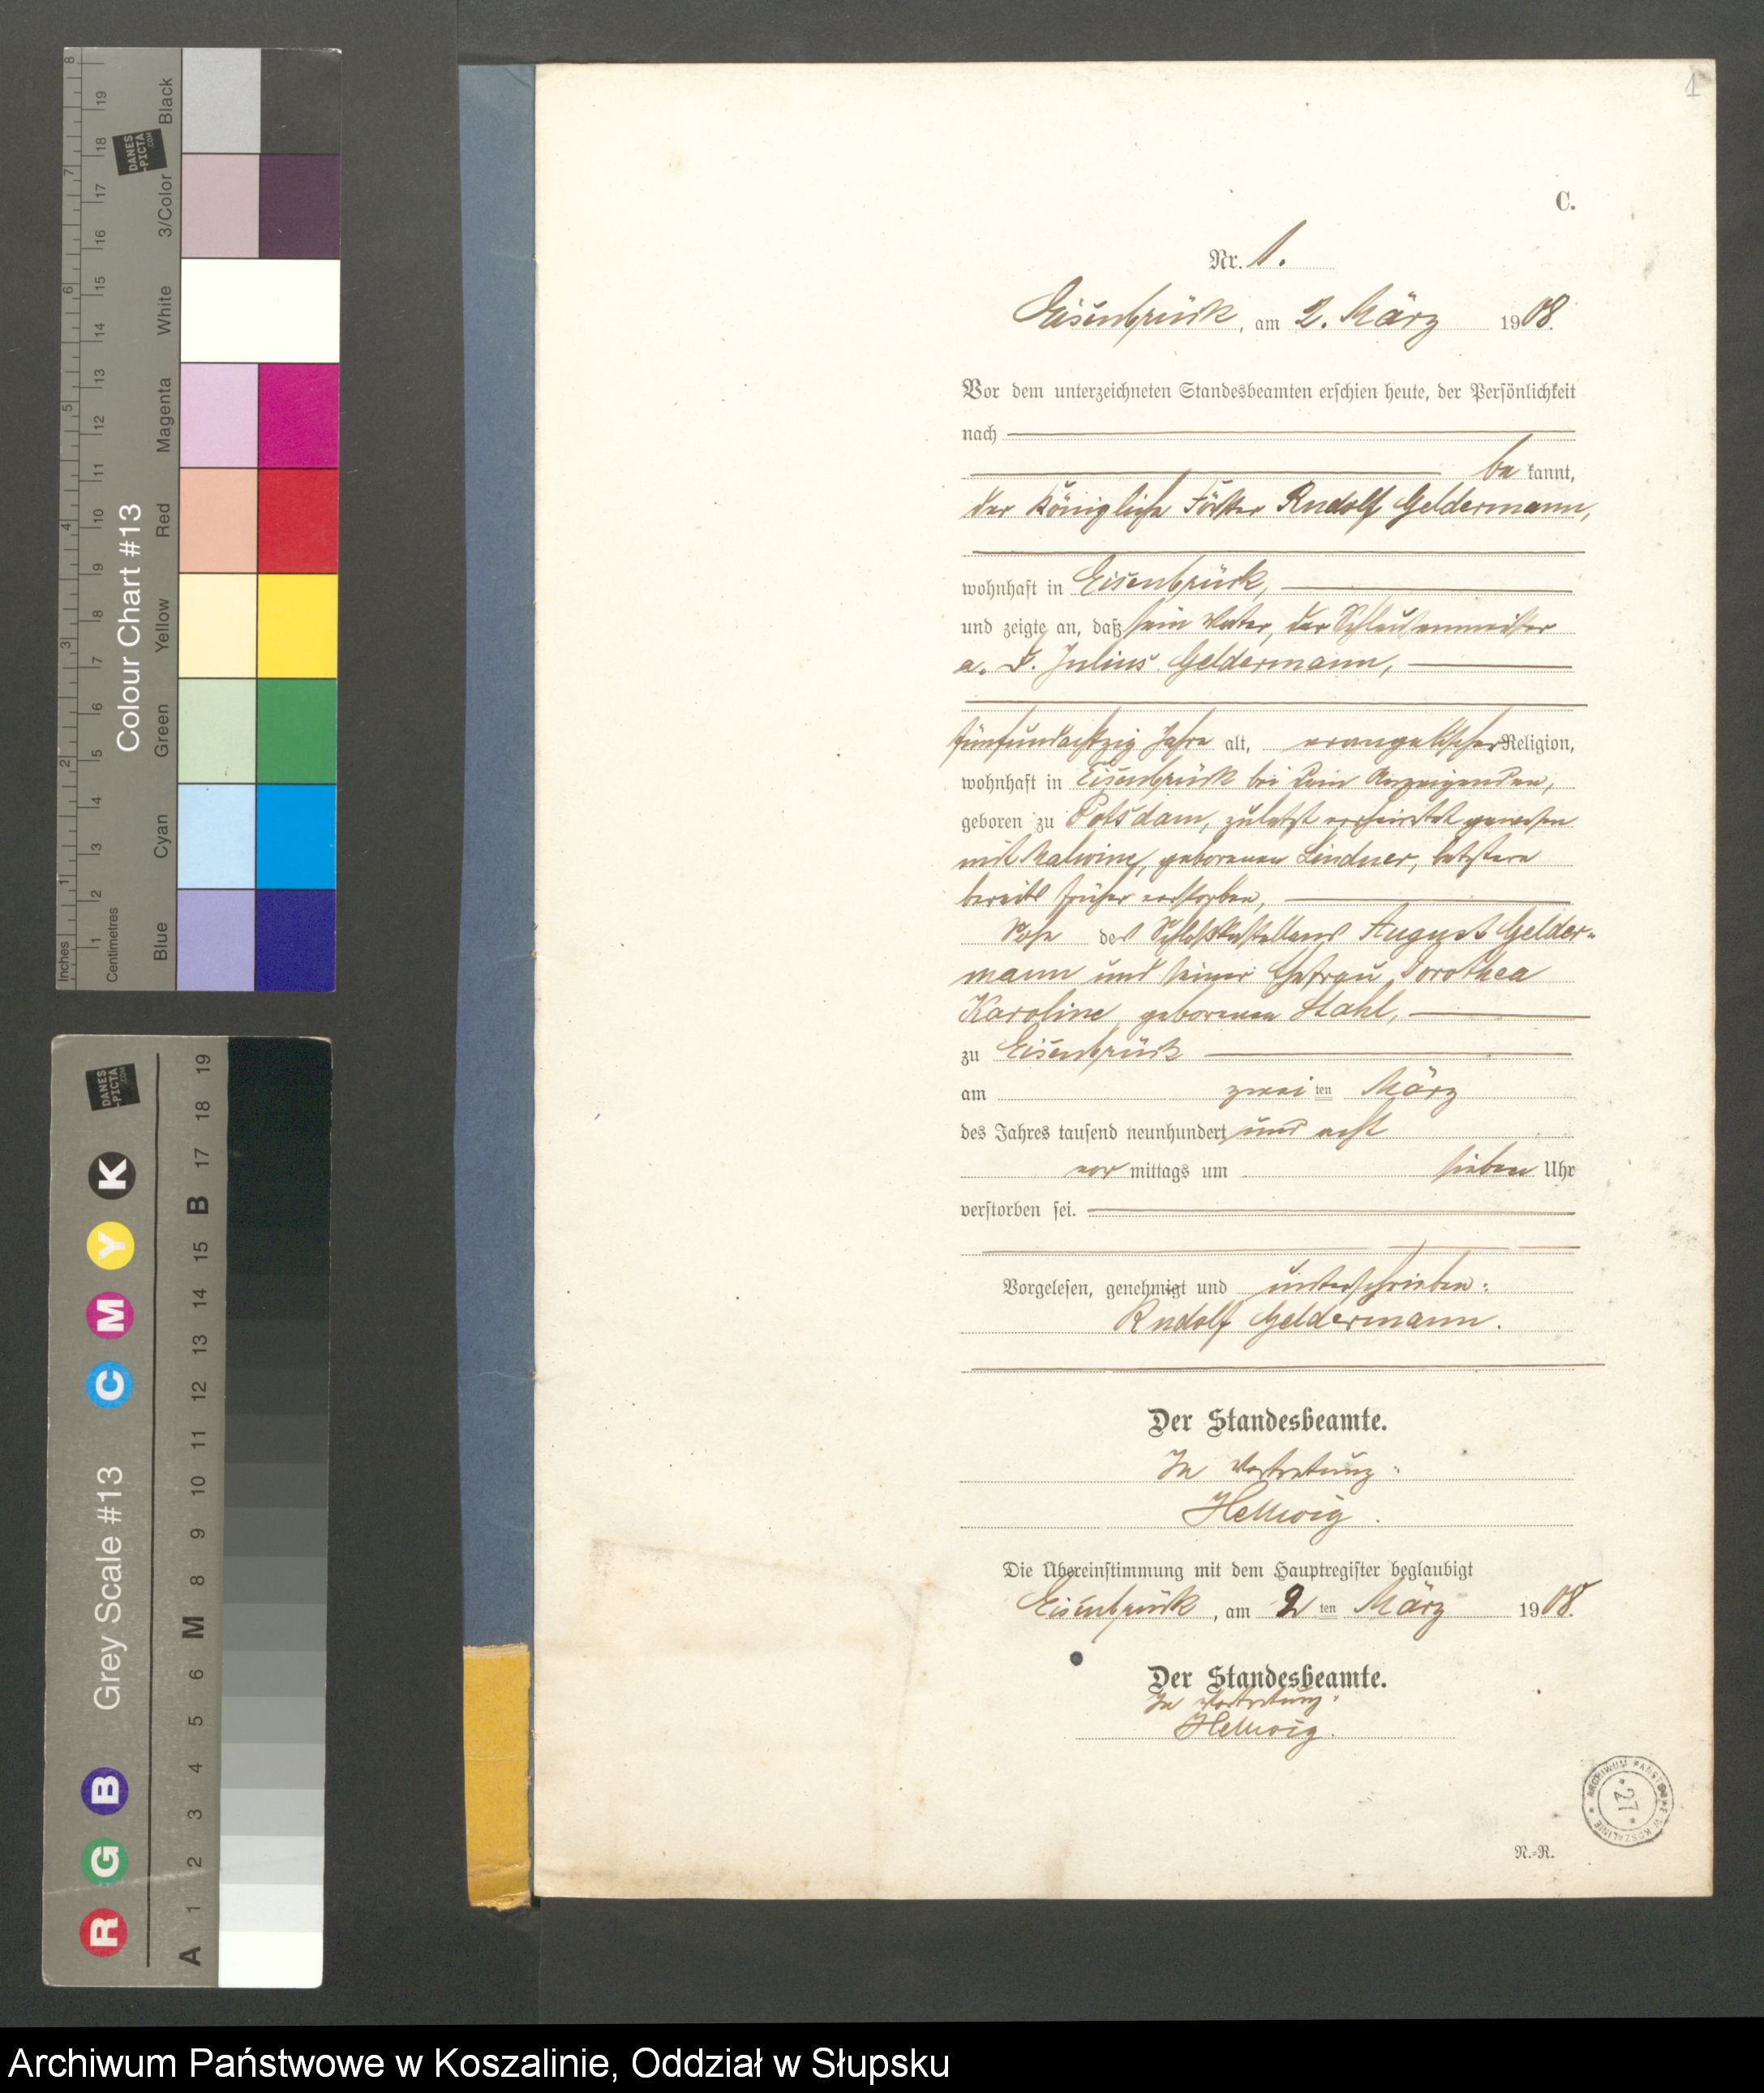 1
C.
Nr. 1.
Eisenbrück, am 2. März 1908.
Vor dem unterzeichneten Standesbeamten erschien heute, der Persönlichkeit
nach
be kannt,
der Königliche Förster Rudolf Geldermann,
wohnhaft in Eisenbrück,
und zeigte an, daß sein Vater, der Schleusenmeister
a. D. Julius Geldermann,
fünfundachtzig Jahre alt, evangelischer Religion,
wohnhaft in Eisenbrück bei dem Anzeigenden,
geboren zu Potsdam, zuletzt verheiratet gewesen
mit Malwine, geborenen Lindner, letztere
bereits früher verstorben,
Sohn des Schloßkastellans August Gelder-
mann und seiner Ehefrau Dorothea
Karoline, geborenen Stahl,
zu Eisenbrück
am zwei ten März
des Jahres tausend neunhundert und acht
vor mittags um sieben Uhr
verstorben sei.
Vorgelesen, genehmigt und unterschrieben:
Rudolf Geldermann.
Der Standesbeamte.
In Vertretung:
Hellwig.
Die Übereinstimmung mit dem Hauptregister beglaubigt
Eisenbrück, am 2 ten März 1908.
Der Standesbeamte.
In Vertretung:
Hellwig.
ARCHIWUM PAŃSTWOWE W KOSZALINIE
* 27 *
N.-R.
Colour Chart #13
Inches
1 2 3 4 5 6 7 8
Centimetres
1 2 3 4 5 6 7 8 9 10 11 12 13 14 15 16 17 18 19
Blue Cyan Green Yellow Red Magenta White 3/Color Black
DANES
-PICTA
.COM
Grey Scale #13
R G B C M Y K
A 1 2 3 4 5 6 M 8 9 10 11 12 13 14 15 B 17 18 19
DANES
-PICTA
.COM
Archiwum Państwowe w Koszalinie, Oddział w Słupsku